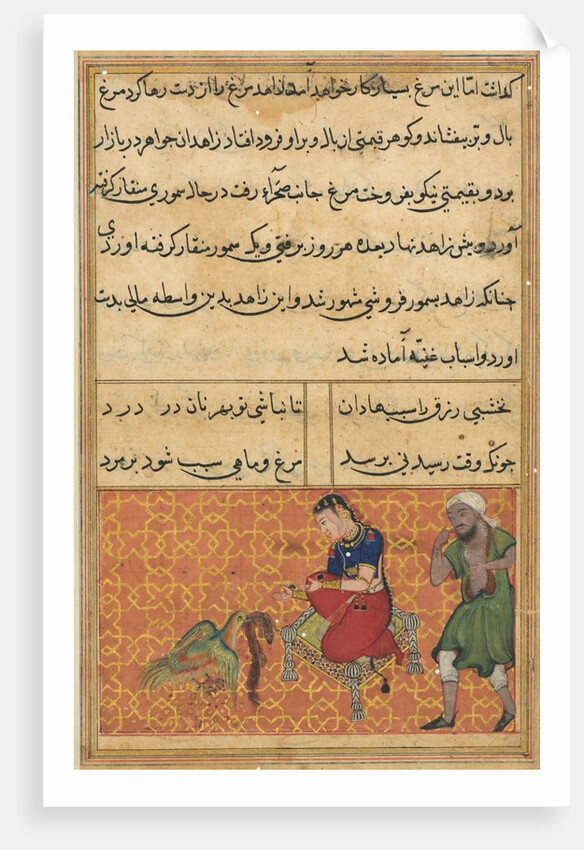 کذاشت اما این مرغ بسیار کار خواهد آمد زاهد مرغ را از دست رها کرد مرغ
بال و پر بیفشاند و کوهر قیمتی از بال و بر او فرود افتاد زاهد ان جواهر در بازار
برد و بقیمتی نیکو بفروخت مرغ جانب صحرای رفت در حال سموری منقار کرفته
آورد و پیش زاهد نهاد بعده هر روز برفتی و یک سمور منقار کرفته اوردی
چنانکه زاهد بسمور فروشی مشهور شد و این زاهد بدین واسطه مالی بدست
اورد و اسباب غنیه آماده شد
نخشبی رزق را سبب هادان تا نباشی تو بهر نان در درد
چونکه وقت رسیدنی برسد مرغ و ماهی سبب شود بر مرد